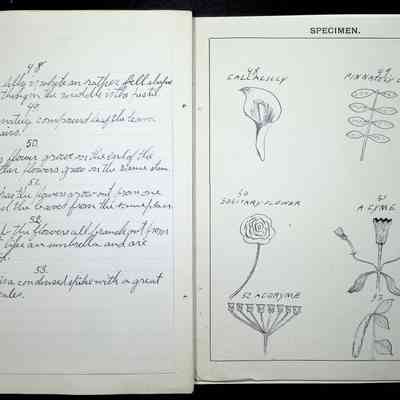 48
lilly is white an rather bell shapes
thing in the middle is the pistil.
49
innately compound leaf the leaves
airs.
50.
flower grows on the end of the
other flowers grow on the same stem
51.
has the flowers grow out from one
and the leaves from the same place
52.
the flowers all branch out from
like an umbrella and are
53.
is a condensed spike with a great
scales.
SPECIMEN.
48
CALLA LILLY
49
PINNATELY C
50
SOLITARY FLOWER
51
A CYME
52 A CORYMB
53